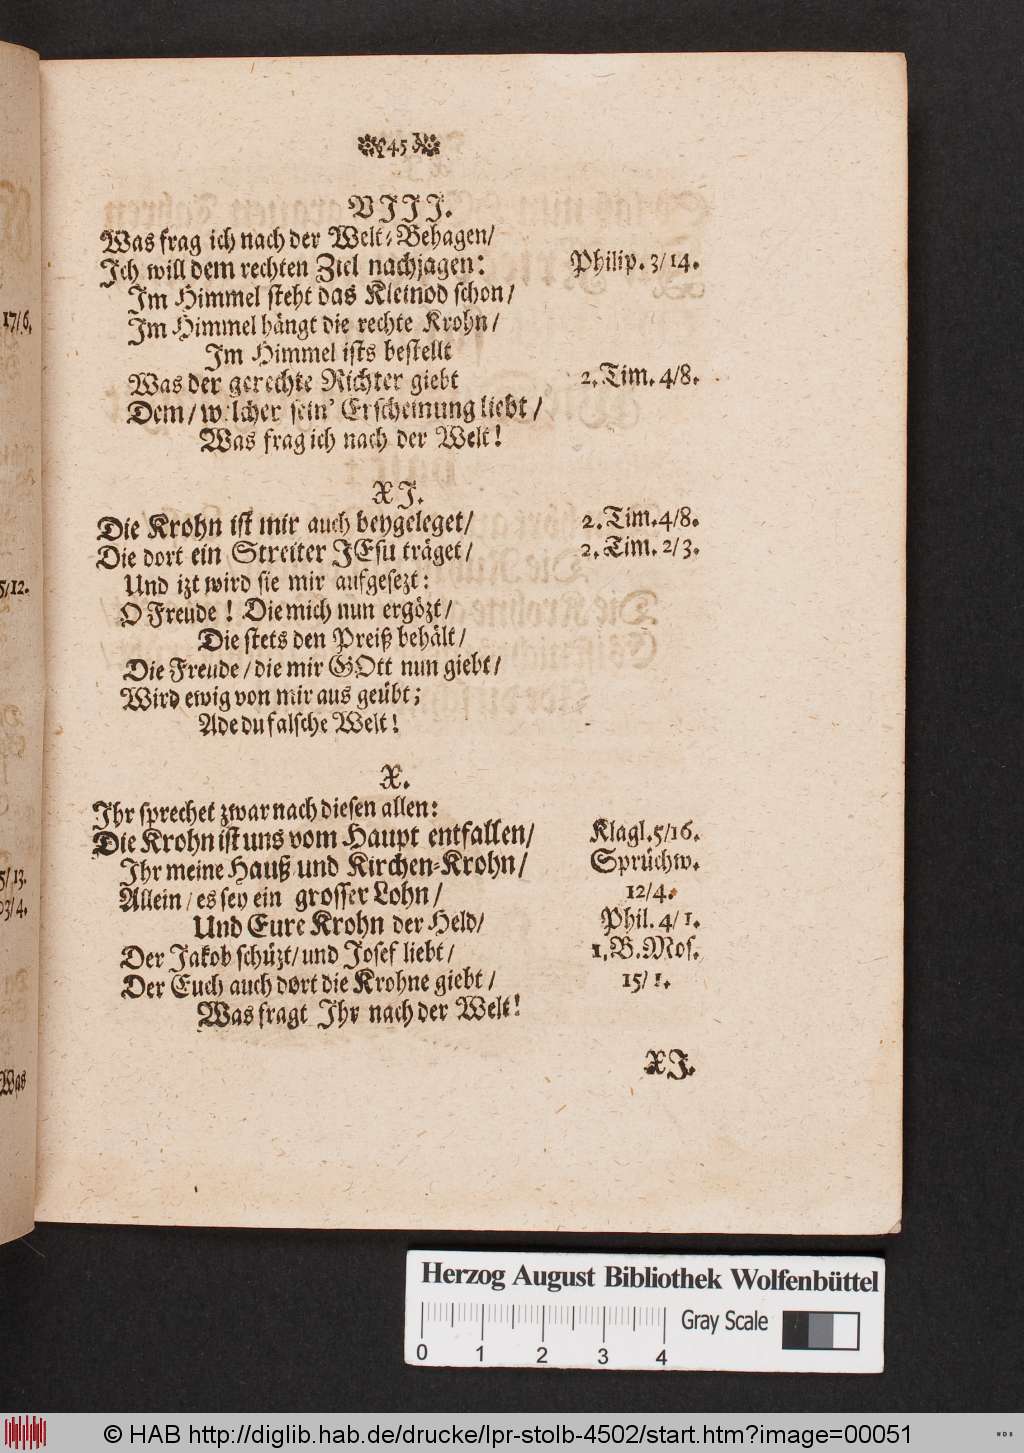 45
VIII.
Was frag ich nach der Welt-Behagen/
Ich will dem rechten Ziel nachjagen:
Philip. 3/14.
Im Himmel steht das Kleinod schon/
17/6.
Im Himmel hängt die rechte Krohn/
Im Himmel ists bestellt
Was der gerechte Richter giebt
2. Tim. 4/8.
Dem/ welcher sein' Erscheinung liebt/
Was frag ich nach der Welt!
XI.
Die Krohn ist mir auch beygeleget/
2. Tim. 4/8.
Die dort ein Streiter JEsu träget/
2. Tim. 2/3.
Und izt wird sie mir aufgesezt:
5/12.
O Freude! Die mich nun ergözt/
Die stets den Preiß behält/
Die Freude/ die mir GOtt nun giebt/
Wird ewig von mir aus geübt;
Ade du falsche Welt!
X.
Ihr sprechet zwar nach diesen allen:
Die Krohn ist uns vom Haupt entfallen/
Klagl. 5/16.
Ihr meine Hauß und Kirchen-Krohn/
Sprüchw.
5/13.
Allein/ es sey ein grosser Lohn/
12/4.
03/4.
Und Eure Krohn der Held/
Phil. 4/1.
Der Jakob schüzt/ und Josef liebt/
1. B. Mos.
Der Euch auch dort die Krohne giebt/
15/1.
Was fragt Ihr nach der Welt!
XI.
Was
Herzog August Bibliothek Wolfenbüttel
Gray Scale
0 1 2 3 4
© HAB http://diglib.hab.de/drucke/lpr-stolb-4502/start.htm?image=00051